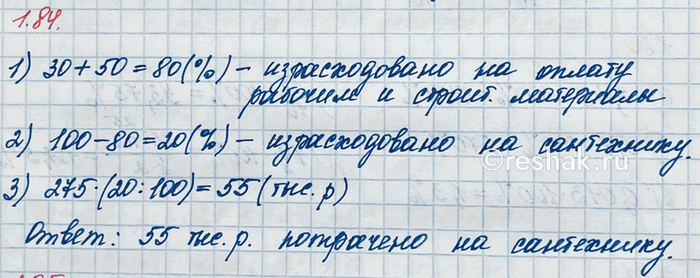 1.84.
1) 30+50=80(%) – израсходовано на оплату
рабочим и строит. материалы
2) 100-80=20(%) – израсходовано на сантехнику.
©reshak.ru
3) 275·(20:100)=55(тыс.р)
Ответ: 55 тыс.р. потрачено на сантехнику.